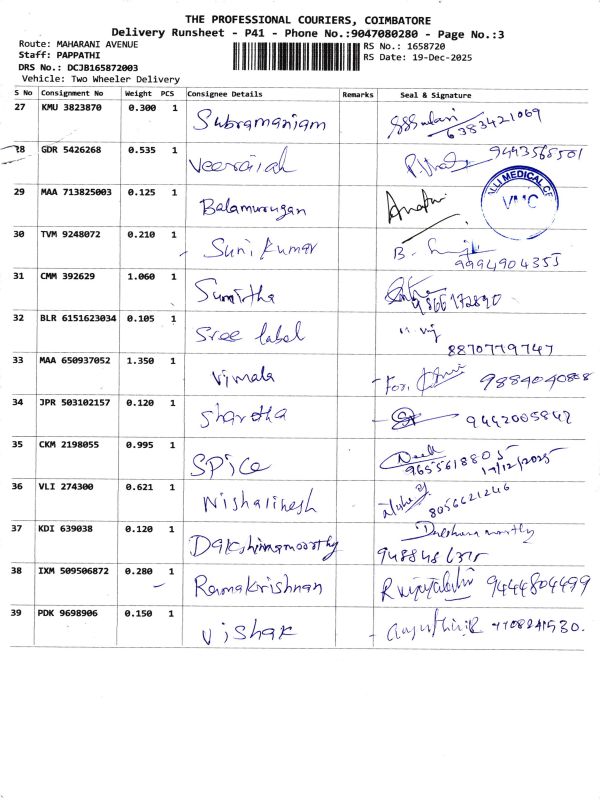 THE PROFESSIONAL COURIERS, COIMBATORE
Delivery Runsheet - P41 - Phone No.:9047080280 - Page No.:3
Route: MAHARANI AVENUE RS No.: 1658720
Staff: PAPPATHI RS Date: 19-Dec-2025
DRS No.: DCJB165872003
Vehicle: Two Wheeler Delivery
S No Consignment No Weight PCS Consignee Details Remarks Seal & Signature
27 KMU 3823870 0.300 1 Subramaniam
6383421069
28 GDR 5426268 0.535 1 Veeraiah 9443565501
29 MAA 713825003 0.125 1 Balamurugan
VMC
30 TVM 9248072 0.210 1 Suni Kumar
9994904355
31 CMM 392629 1.060 1 Sumitha
9866172890
32 BLR 6151623034 0.105 1 Sree label
8870779747
33 MAA 650937052 1.350 1 Vimala For. 9884040808
34 JPR 503102157 0.120 1 Sharatha 9442005842
35 CKM 2198055 0.995 1 SPice
9655618805
19/12/2025
36 VLI 274300 0.621 1 Nishalinesh
8056621246
37 KDI 639038 0.120 1 Dakshinamoorthy
38 IXM 509506872 0.280 1 Ramakrishnan R vijayalakshmi 9444804499
39 PDK 9698906 0.150 1 Vishak